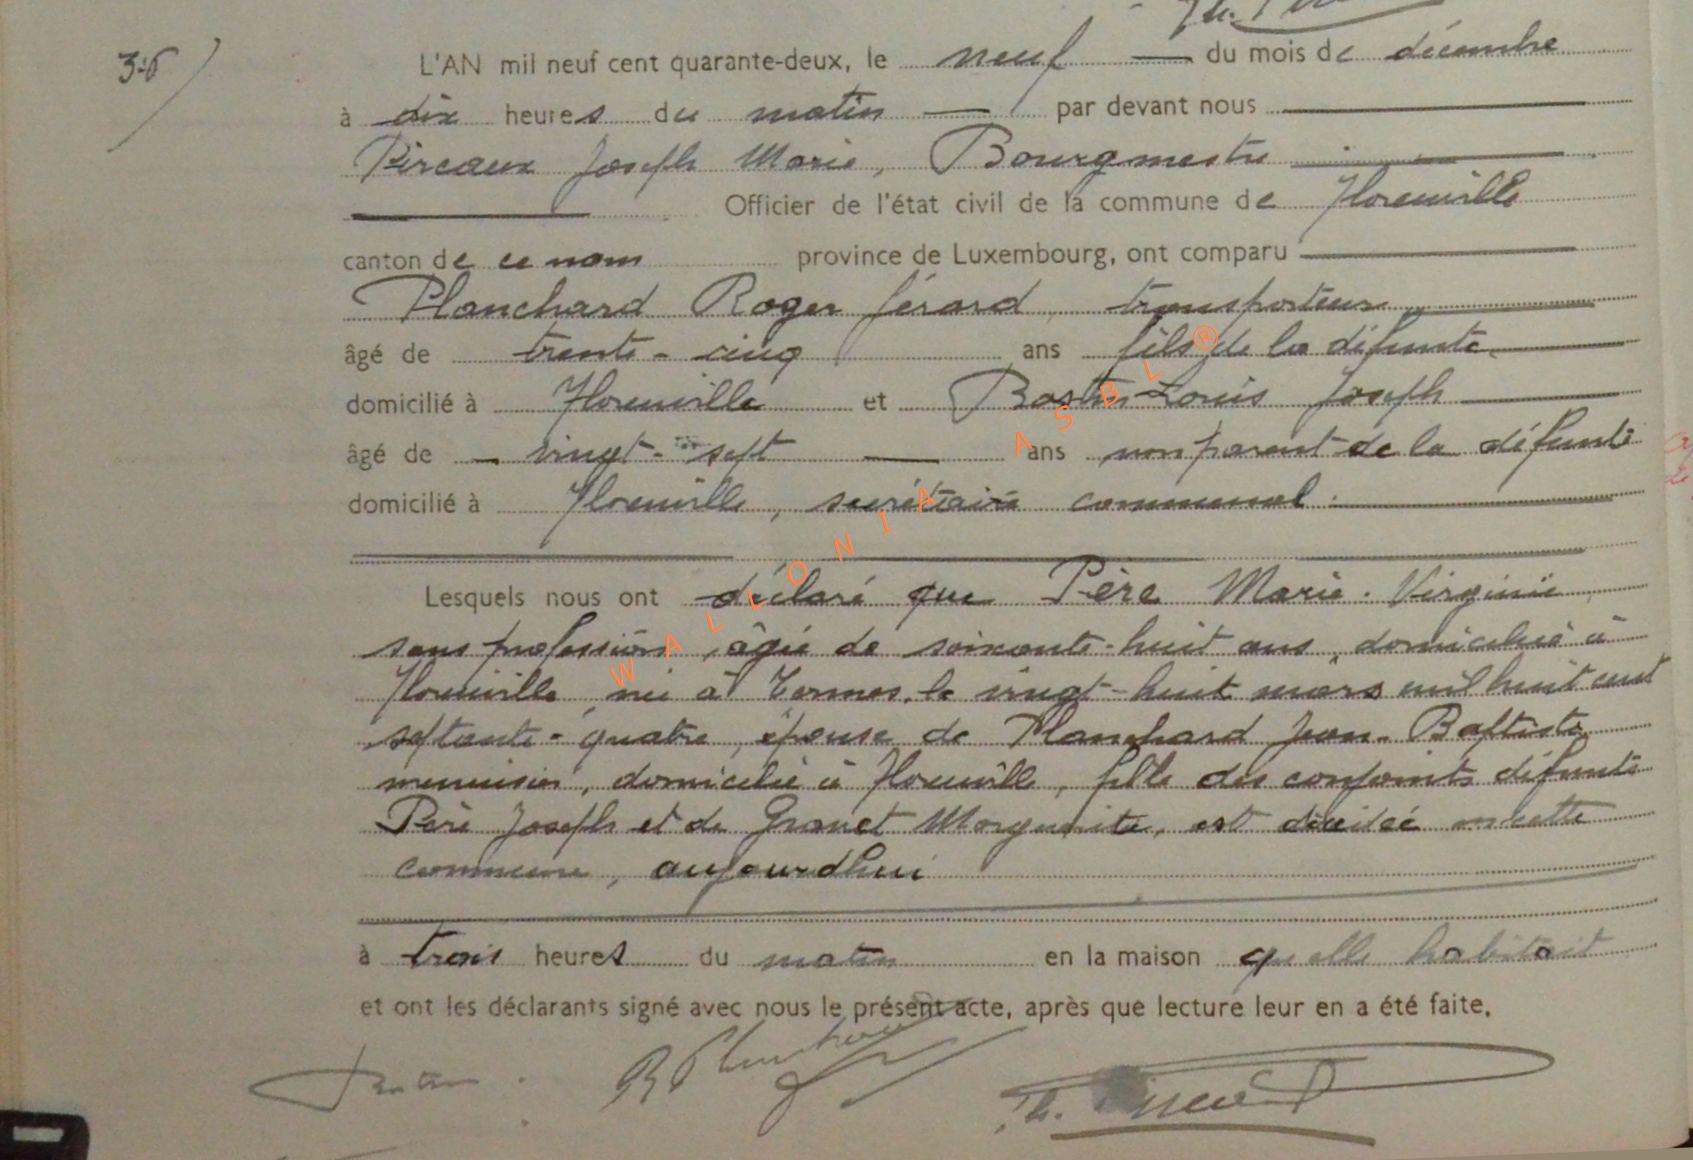 36
L'AN mil neuf cent quarante-deux, le neuf — du mois de décembre
à dix heures du matin — par devant nous
Pireaux Joseph Marie, Bourgmestre
Officier de l'état civil de la commune de Florenville
canton de ce nom province de Luxembourg, ont comparu
Planchard Roger Gérard, transporteur
âgé de trente-cinq ans fils de la défunte
domicilié à Florenville et Bastin Louis Joseph
âgé de — vingt-sept — ans non parent de la défunte
domicilié à Florenville, secrétaire communal.
Lesquels nous ont déclaré que Père Marie-Virginie,
sans profession, âgée de soixante-huit ans, domiciliée à
Florenville, née à Termes, le vingt-huit mars mil huit cent
septante-quatre, épouse de Planchard Jean-Baptiste
menuisier, domicilié à Florenville, fille des conjoints défunts
Père Joseph et de Granet Marguerite, est décédée en cette
commune, aujourd'hui
à trois heures du matin en la maison qu'elle habitait
et ont les déclarants signé avec nous le présent acte, après que lecture leur en a été faite.
R Planchard
WALLONIA ASBL®